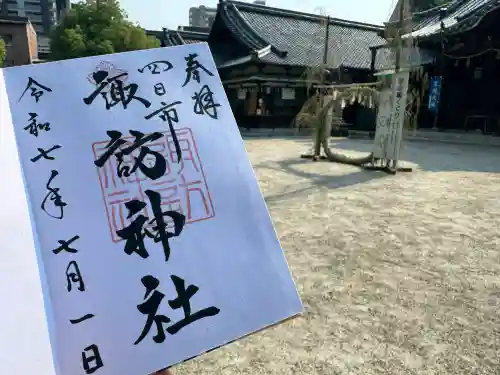 奉拝
四日市
諏訪神社
令和七年
七月一日